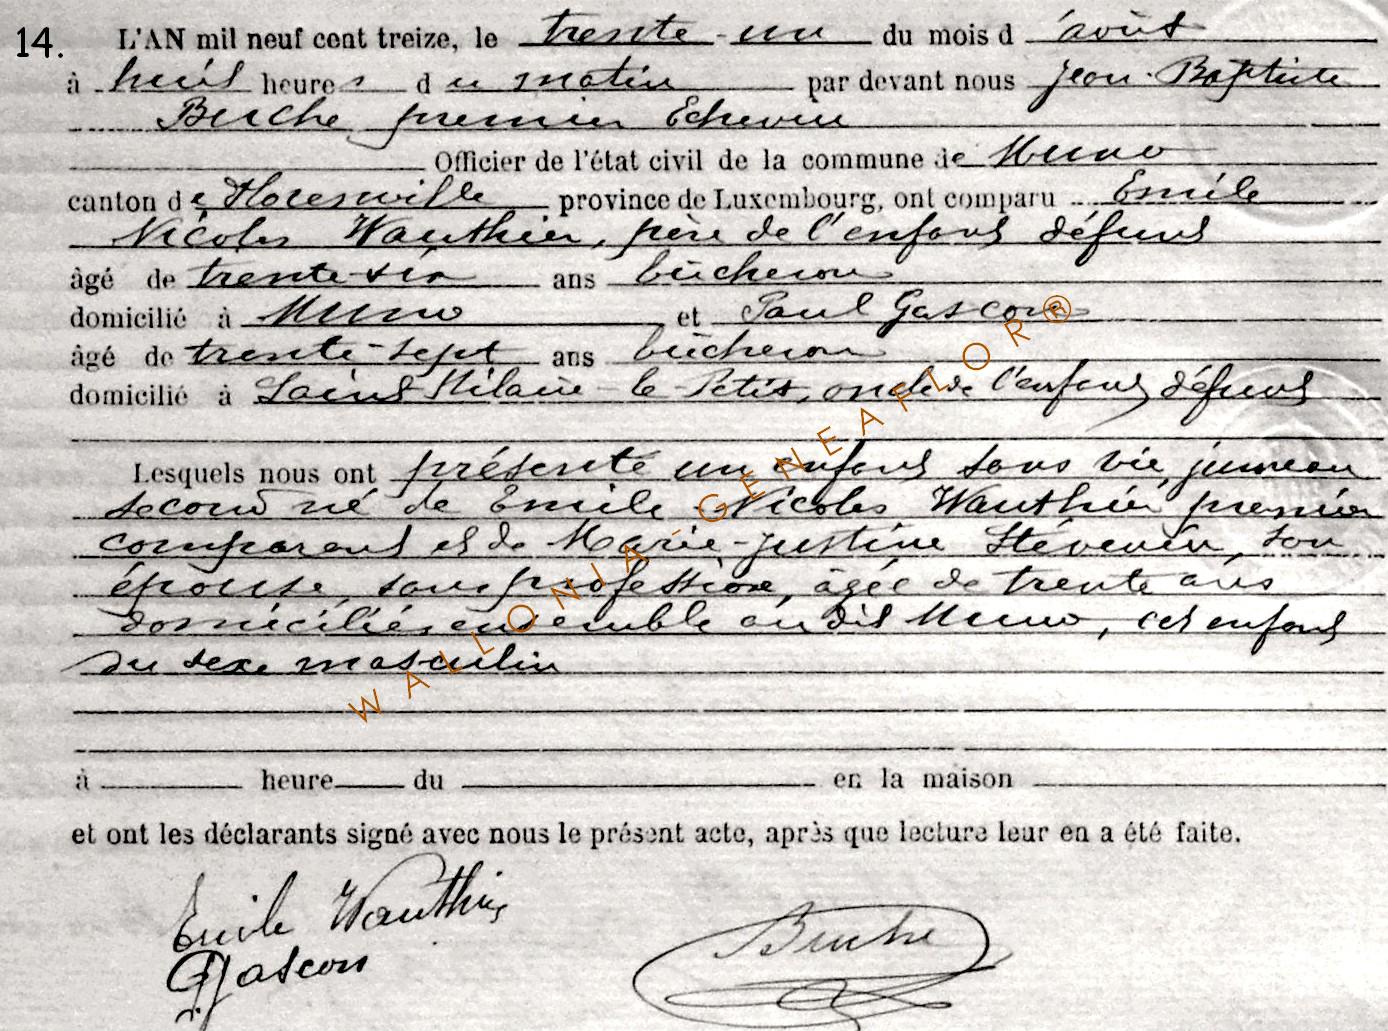 14. L'AN mil neuf cent treize, le trente-un du mois d'août
à huit heures du matin par devant nous Jean-Baptiste
Buche premier Echevin
Officier de l'état civil de la commune de Muno
canton de Florenville province de Luxembourg, ont comparu Emile
Nicolas Wauthier, père de l'enfant défunt
âgé de trente-six ans bûcheron
domicilié à Muno et Paul Gascon
âgé de trente-sept ans bûcheron
domicilié à Saint Hilaire-le-Petit, oncle de l'enfant défunt
Lesquels nous ont présenté un enfant sans vie, jumeau
second né de Emile Nicolas Wauthier premier
comparant et de Marie-Justine Stévenin, son
épouse, sans profession, âgée de trente ans
domiciliés ensemble au dit Muno, cet enfant
du sexe masculin
à heure du en la maison
et ont les déclarants signé avec nous le présent acte, après que lecture leur en a été faite.
Emile Wauthier
Gascon
Buche
WALLONIA-GENEAFLOR®